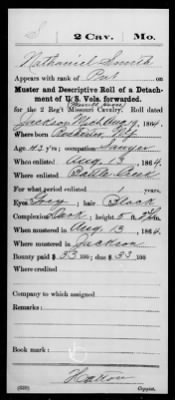 S | 2 Cav. | Mo.
Nathaniel Smith
Appears with rank of Pvt on
Muster and Descriptive Roll of a Detach-
ment of U. S. Vols. forwarded.
(Merrill Horse)
for the 2 Reg't Missouri Cavalry. Roll dated
Jackson Mich Aug 19, 1864.
Where born Rochester, N.Y.
Age 43 y'rs; occupation Sawyer
When enlisted Aug 13, 1864.
Where enlisted Battle Creek
For what period enlisted 1 years.
Eyes Grey; hair Black
Complexion Dark; height 5 ft. in.
When mustered in Aug 13, 1864.
Where mustered in Jackson
Bounty paid $33 /100; due $ 33 /100
Where credited
Company to which assigned
Remarks:
Book mark:
Hatton
(639) Copyist.